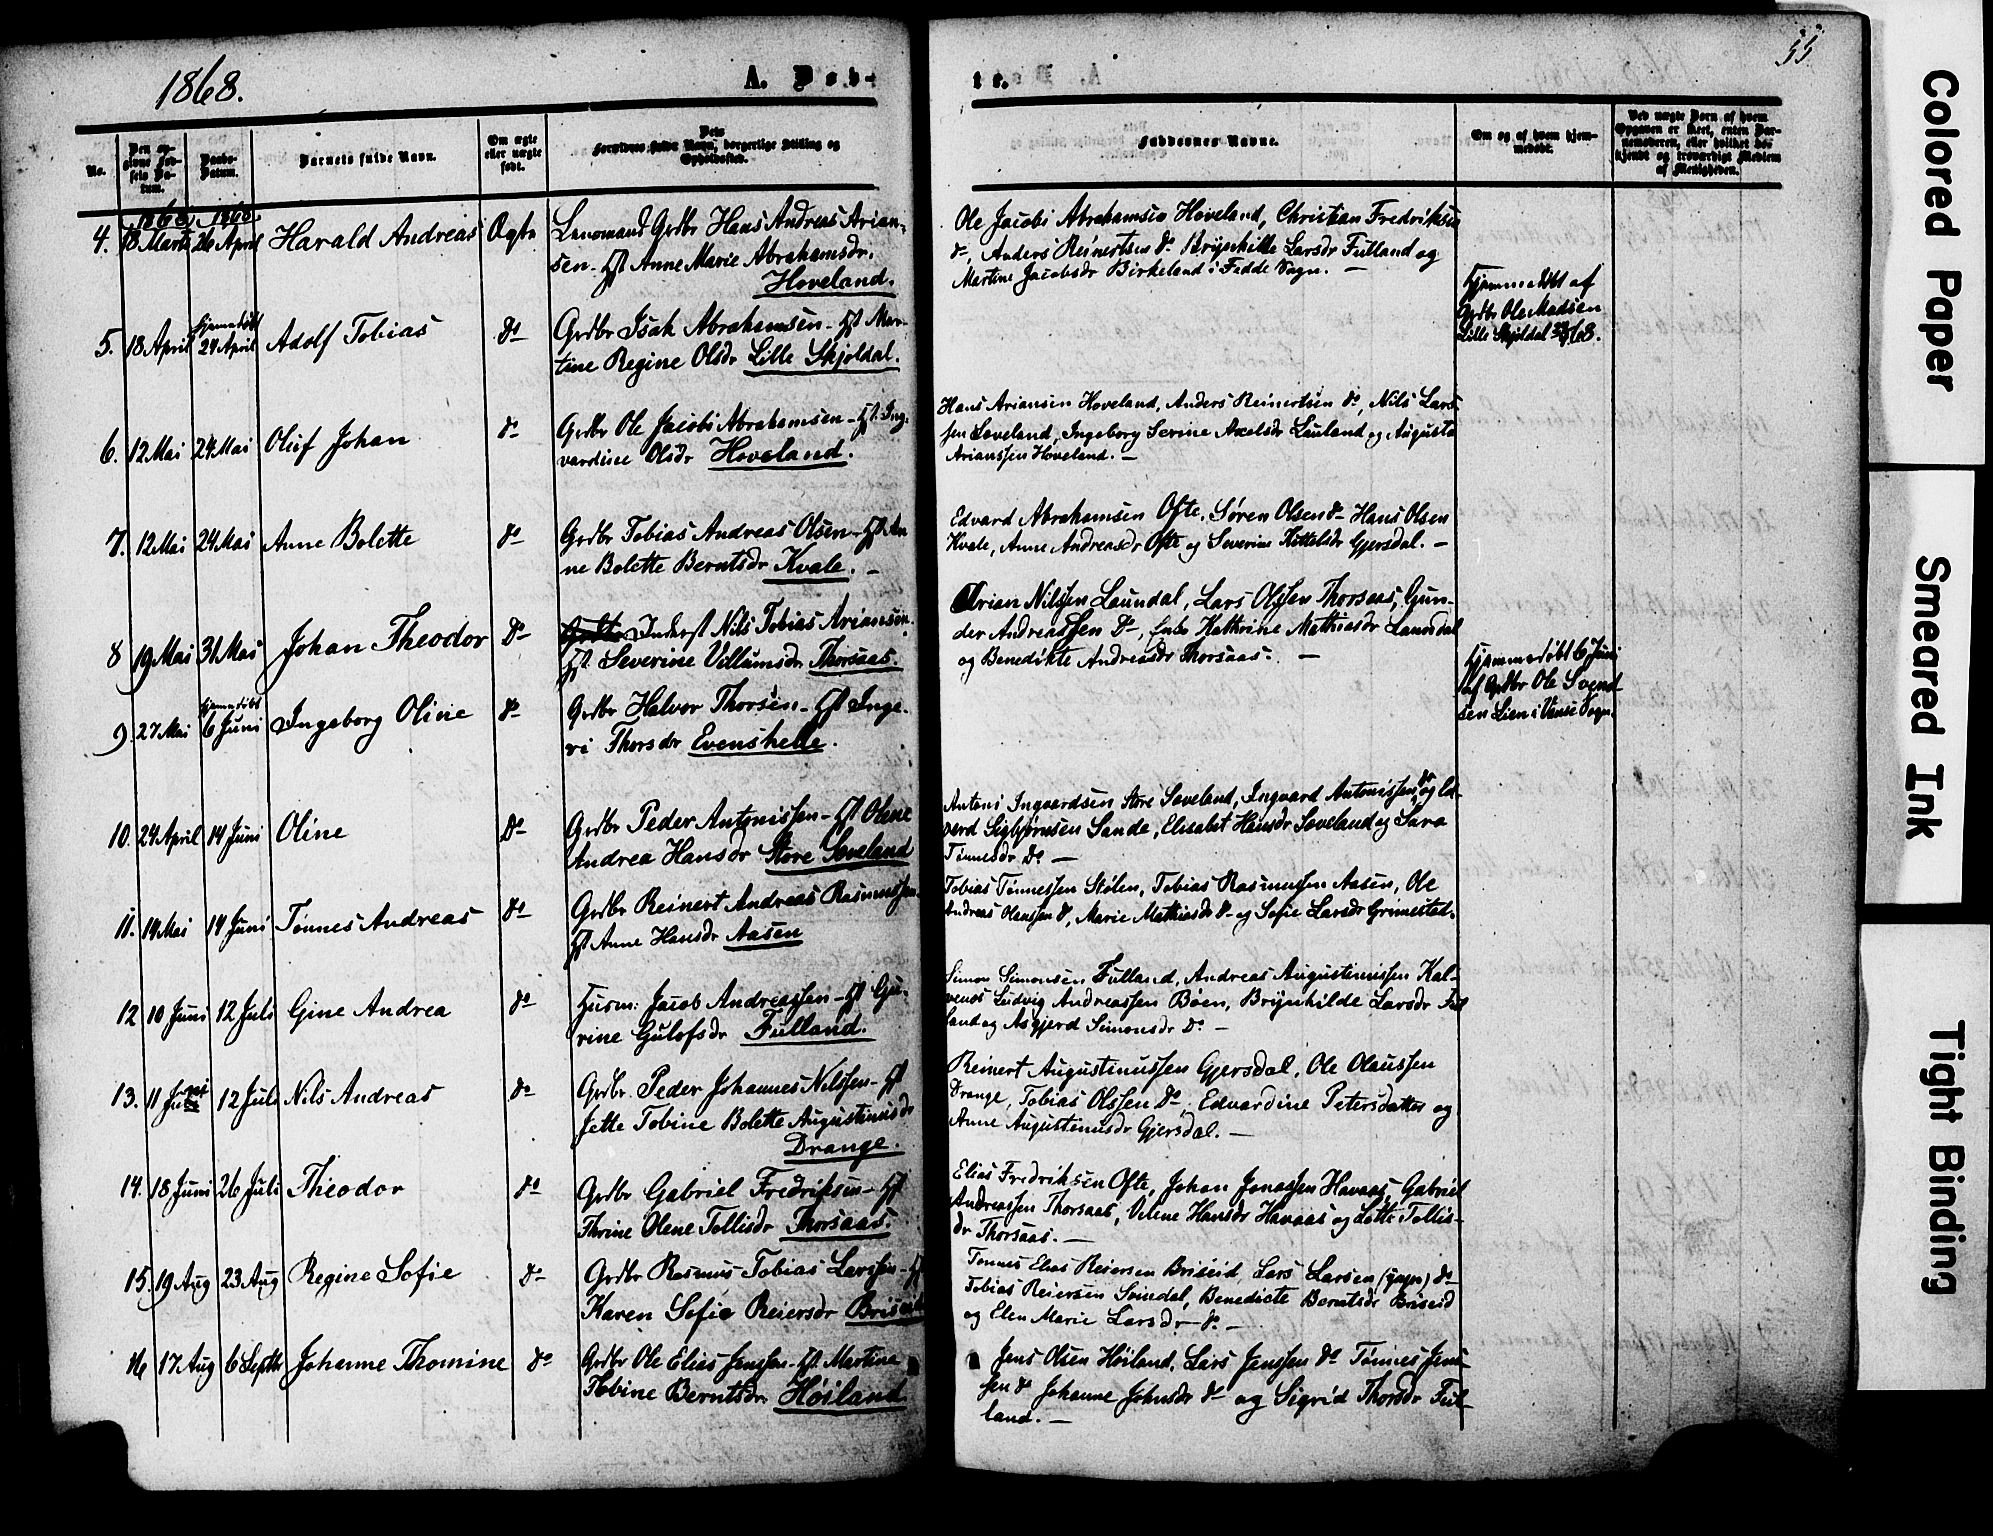 1868.
A. Døb-
te.
55
No.
Den op-
givne Fød-
sels Da-
tum.
Daabs-
Datum.
Barnets fulde Navn.
Om ægte
eller uægte
født.
Dets
Forældres fulde Navn, borgerlige Stilling og
Opholdssted.
Faddernes Navne.
Om og af hvem hjem-
medøbt.
Ved uægte Børn af hvem
Opgaven er skeet, enten Bar-
nemoderen, eller hvilket be-
kjendt og troværdigt Medlem
af Menigheden.
1868 1868
4. 18 Marts 26 April Harald Andreas Ægte Lensmand Grdbr Hans Andreas Arian-
sen - Hst Anne Marie Abrahamsdr.
Hoveland.
Ole Jacobi Abrahamsen Hoveland, Christian Fredriksen
do, Anders Reinertsen do Brynhilde Larsdr Fulland og
Martine Jacobsdr Birkeland i Fedde Sogn. -
5. 18 April hjemmedøbt 24 April Adolf Tobias do Grdbr Isak Abrahamsen - Hst Mar-
tine Regine Olsdr Lille Skjoldal.
Hjemmedøbt af
Grdbr Ole Madsen
Lille Skjoldal 68.
6. 12 Mai 24 Mai Oluf Johan do Grdbr Ole Jacobi Abrahamsen - Hst Ing-
vardine Olsdr Hoveland.
Hans Ariansen Hoveland, Anders Reinertsen do, Nils Lars-
sen Soveland, Ingeborg Serine Axelsdr Lauland og Augusta
Arianssen Hoveland. -
7. 12 Mai 24 Mai Anne Bolette do Grdbr Tobias Andreas Olsen - Hst An-
ne Bolette Berntsdr Kvale. -
Edvard Abrahamsen Ofte, Søren Olsen do Hans Olsen
Kvale, Anne Andreasdr Ofte og Severine Kittelsdr Gjersdal. -
8 19 Mai 31 Mai Johan Theodor Do Grdbr Inderst Nils Tobias Ariansen.
Hst Severine Villumsdr Thorsaas.
Arian Nilssen Laundal, Lars Olssen Thorsaas, Gun-
der Andreassen Do, Enke Kathrine Mathiasdr Laundal
og Benedikte Andreasdr Thorsaas. -
9. 27 Mai hjemmedøbt 6 Juni Ingeborg Oline do Grdbr Halvor Thorsen - Hst Inge-
ri Thorsdr Evenshelle.
Hjemmedøbt 6 Juni
af Grdbr Ole Svend-
sen Lien i Vanse Sogn.
10. 24 April 14 Juni Oline Do Grdbr Peder Antonissen - Hst Olene
Andrea Hansdr Store Soveland
Antoni Ingvardsen Store Soveland, Ingvard Antonissen do og Ed-
verd Sigbjørnsen Sande, Elisabet Hansdr Soveland og Sara
Tønnesdr Do -
11. 19 Mai 14 Juni Tønnes Andreas do Grdbr Reinert Andreas Rasmussen
Hst Anne Hansdr Aasen
Tobias Tønnessen Stølen, Tobias Rasmussen Aasen, Ole
Andreas Hanssen do, Marie Mathiasdr do og Sofie Larsdr Grimestad.
12 10 Juni 12 Juli Gine Andrea do Husm: Jacob Andreassen - Hst Gu-
rine Gulofsdr Fulland.
Simon Simonsen Fulland, Andreas Augustinussen Kal-
venes Ludvig Andreassen Bøen, Brynhilde Larsdr Ful-
land og Asgjerd Simonsdr do -
13. 11 Juni 12 Juli Nils Andreas do Grdbr. Peder Johannes Nilssen - Hst
Jette Tobine Bolette Augustinusdr
Drange.
Reinert Augustinussen Gjersdal, Ole Olaussen
Drange, Tobias Olssen Do, Edvardine Petersdatter og
Anne Augustinusdr Gjersdal. -
14. 18 Juni 26 Juli Theodor do Grdbr Gabriel Fredriksen - Hst
Thrine Olene Tollisdr Thorsaas.
Elias Fredriksen Ofte, Johan Jonassen Havaas, Gabriel
Andreassen Thorsaas, Velene Hansdr Havaas og Lotte Tollis-
dr Thorsaas. -
15. 19 Aug 23 Aug Regine Sofie do Grdbr Rasmus Tobias Larssen - Hst
Karen Sofie Reiersdr Briseid
Tønnes Elias Reiersen Briseid, Lars Larsen (yngre) do
Tobias Reiersen Svindal, Benedicte Berntsdr Briseid
og Elen Marie Larsdr do -
16 17 Aug 6 Septbr Johanne Thomine do Grdbr Ole Elias Jenssen - Hst Martine
Tobine Berntsdr. Høiland
Jens Olsen Høiland, Lars Jenssen do Tønnes Jens-
sen do Johanne Johnsdr do og Sigrid Thorsdr Ful-
land. -
Colored Paper
Smeared Ink
Tight Binding